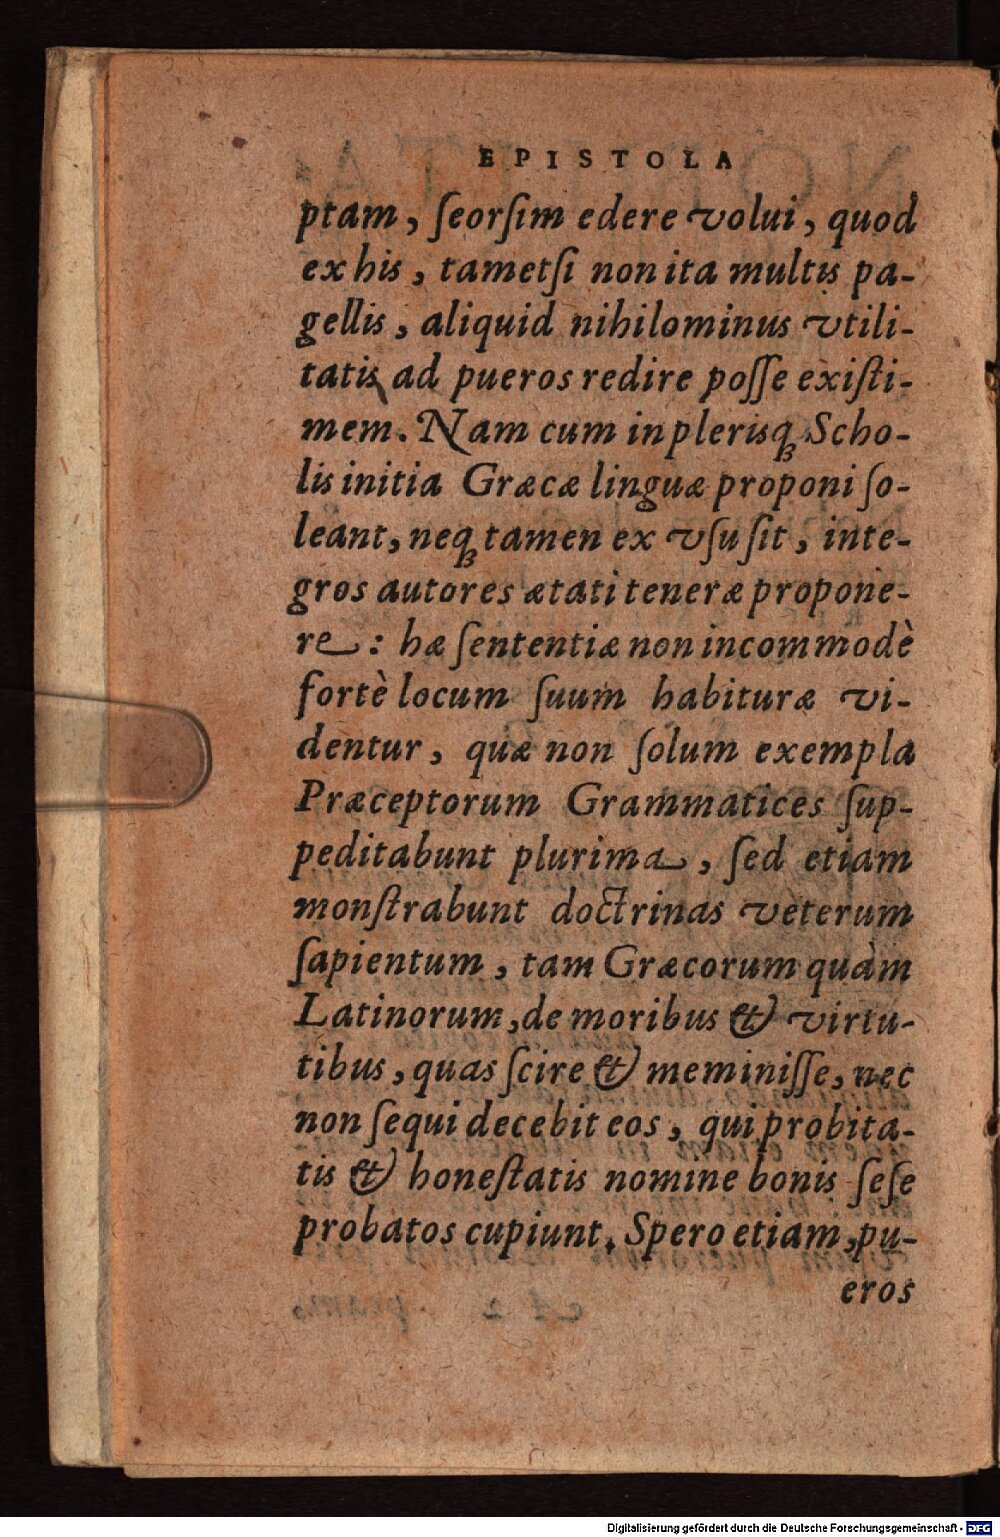 EPISTOLA
ptam, ſeorſim edere volui, quod
ex his, tametſi non ita multis pa-
gellis, aliquid nihilominus vtili-
tatis ad pueros redire poſſe exiſti-
mem. Nam cum in plerisq́ꝫ Scho-
lis initia Græcæ linguæ proponi ſo-
leant, neqꝫ tamen ex vſu ſit, inte-
gros autores ætati teneræ propone-
re: hæ ſententiæ non incommodè
fortè locum ſuum habituræ vi-
dentur, quæ non ſolum exempla
Præceptorum Grammatices ſup-
peditabunt plurima, ſed etiam
monſtrabunt doctrinas veterum
ſapientum, tam Græcorum quàm
Latinorum, de moribus & virtu-
tibus, quas ſcire & meminiſſe, nec
non ſequi decebit eos, qui probita-
tis & honeſtatis nomine bonis ſeſe
probatos cupiunt. Spero etiam, pu-
eros
Digitalisierung gefördert durch die Deutsche Forschungsgemeinschaft - DFG